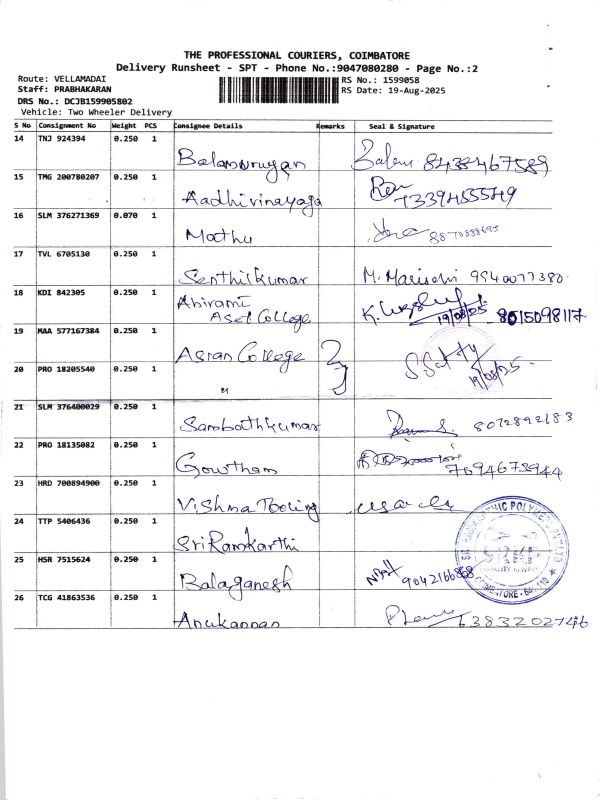 THE PROFESSIONAL COURIERS, COIMBATORE
Delivery Runsheet - SPT - Phone No.:9047080280 - Page No.:2
Route: VELLAMADAI
RS No.: 1599058
Staff: PRABHAKARAN
RS Date: 19-Aug-2025
DRS No.: DCJB159905802
Vehicle: Two Wheeler Delivery
S No Consignment No Weight PCS Consignee Details Remarks Seal & Signature
14 TNJ 924394 0.250 1
Balamurugan
15 TMG 200780207 0.250 1
Aadhivinayaga
16 SLM 376271369 0.070 1
Mathu 8870888695
17 TVL 6705130 0.250 1
Senthilkumar M. Mariselvi 9940077380
18 KDI 842305 0.250 1
Abirami
Aset College 19/08/25 8015098117
19 MAA 577167384 0.250 1
Asian College
20 PRO 18205540 0.250 1
19/08/25
21 SLM 376400029 0.250 1
Sambathkumar 8072892183
22 PRO 18135082 0.250 1
Gowtham 7094673944
23 HRD 700894900 0.250 1
Vishma Tooling
24 TTP 5406436 0.250 1
SriRamkarthi
25 HSR 7515624 0.250 1
Balaganesh 9042166868
26 TCG 41863536 0.250 1
Anukannan 6383202746